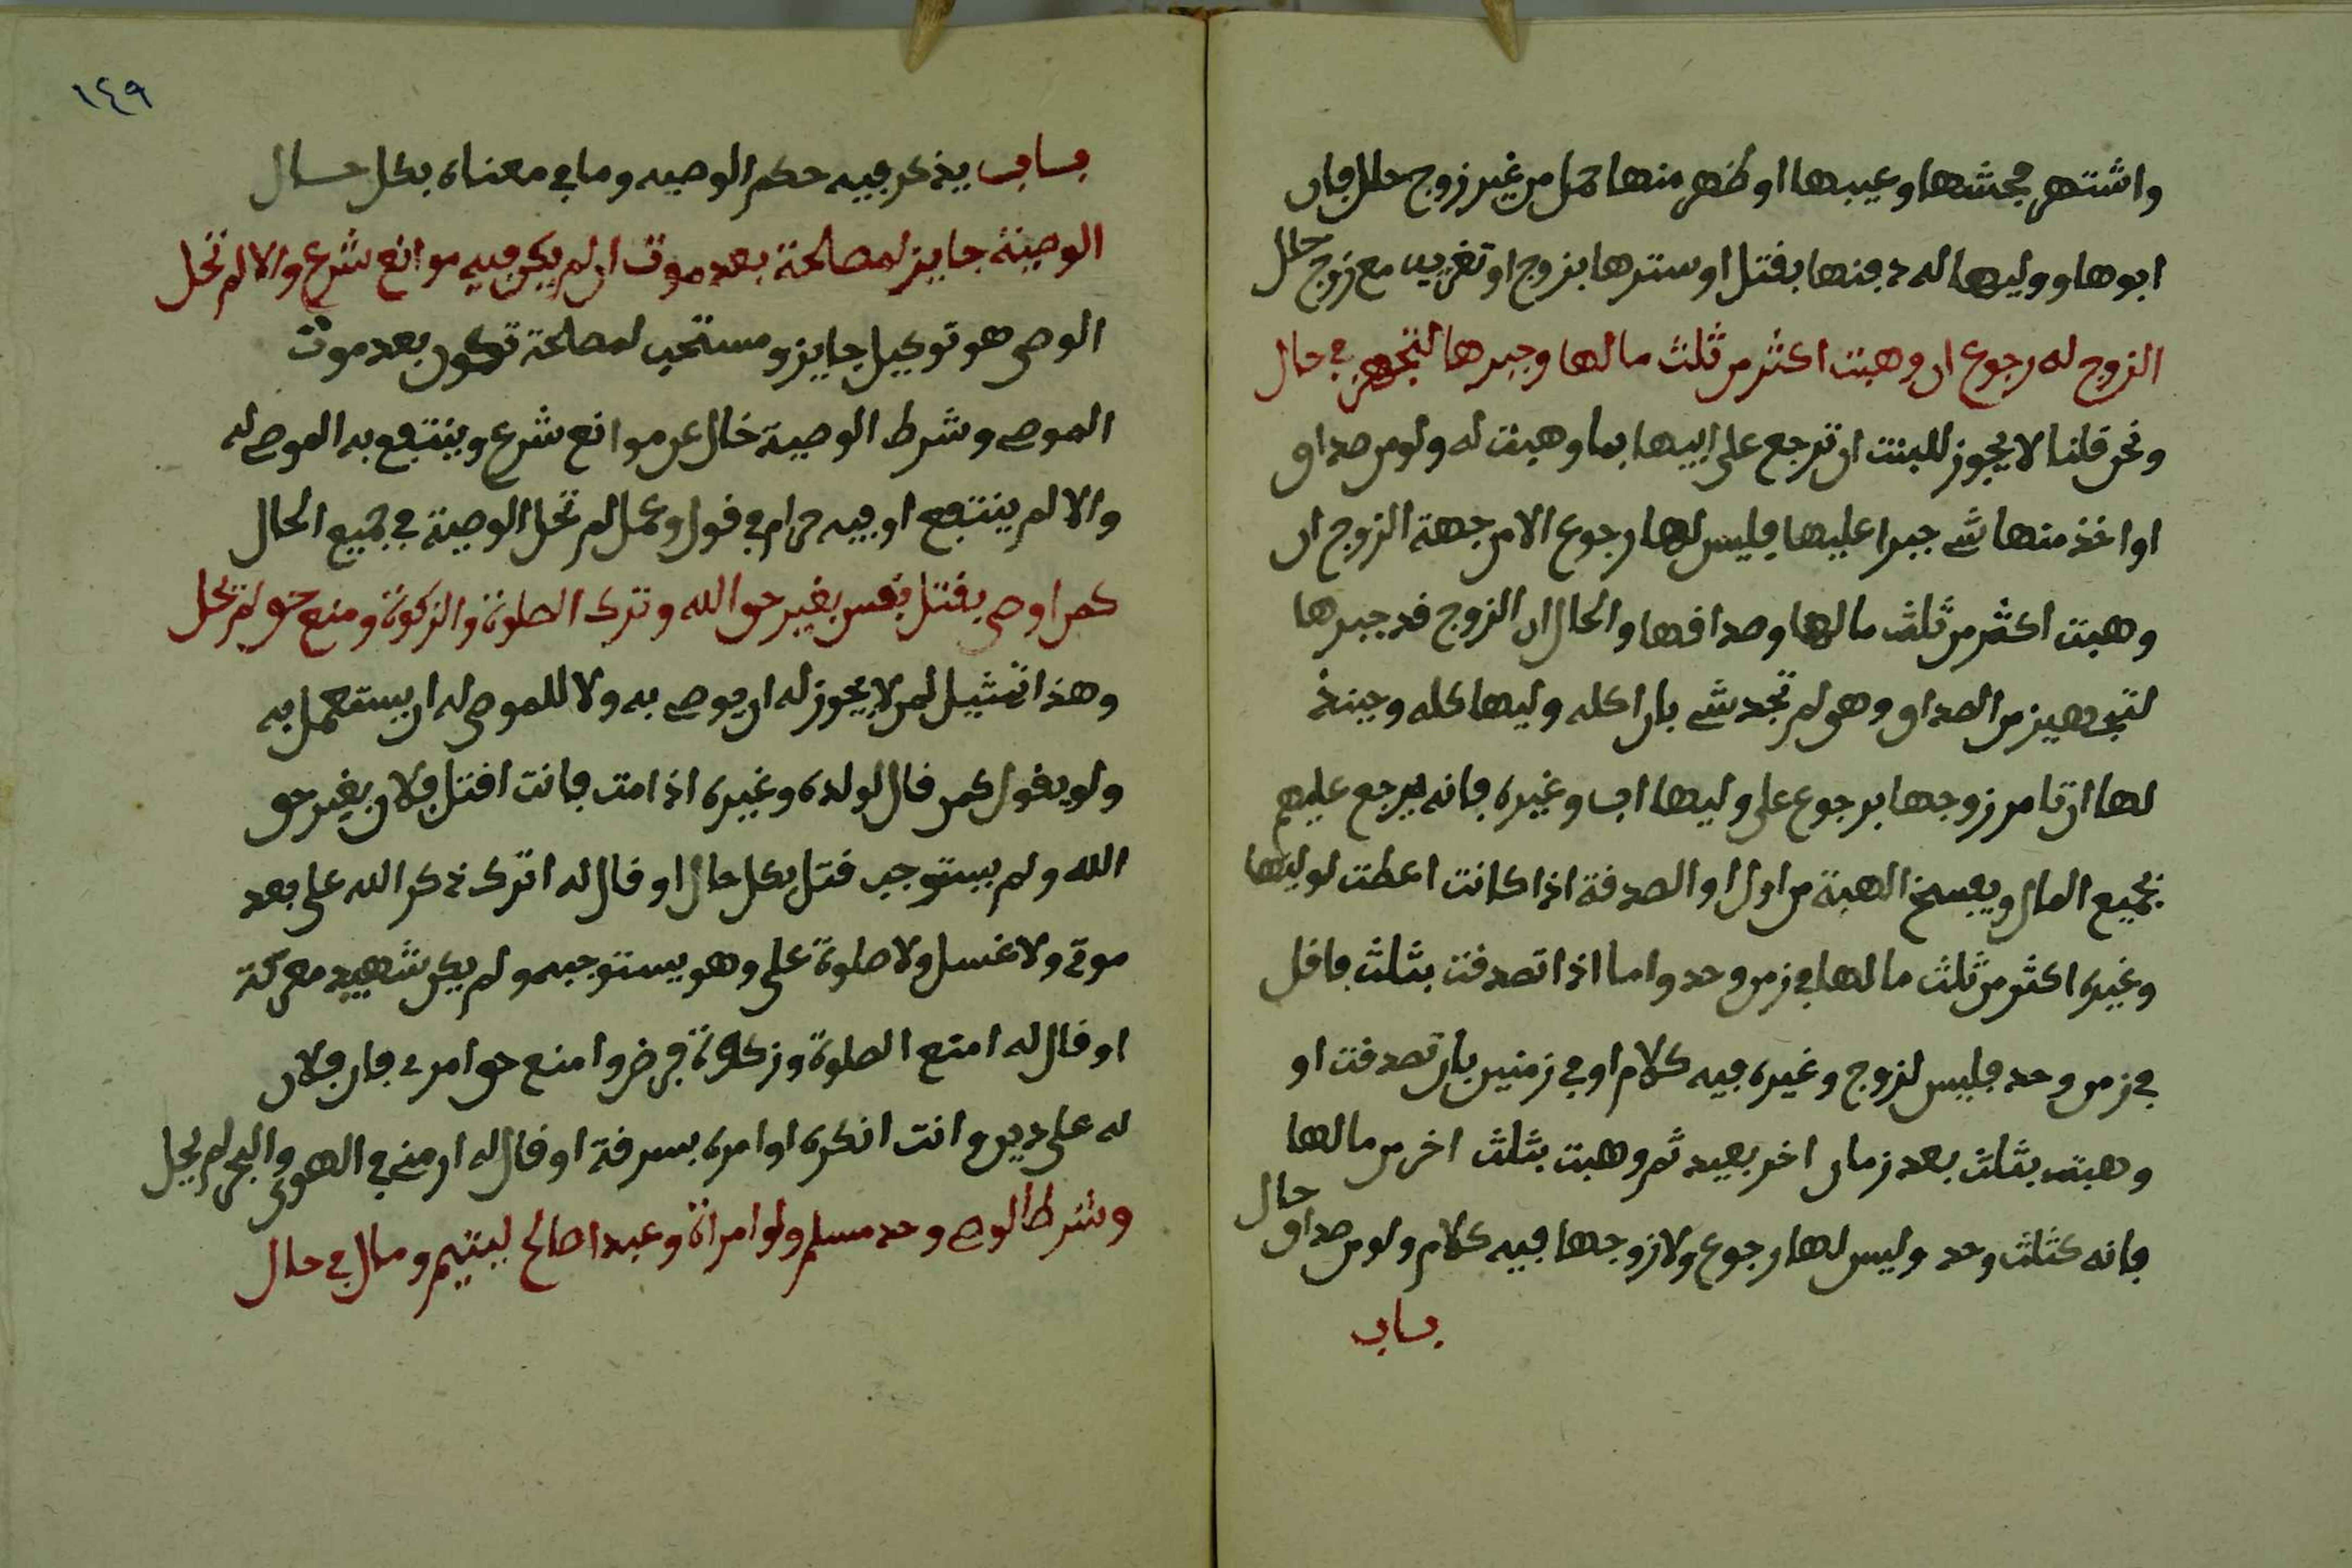 واشتهر فحشها وعيبها او ظهر منها حمل من غير زوج حلل فان
ابوها ووليها له دفنها بقتل او سترها بزوج او تغريب مع زوج حلل
الزوج له رجوع ان وهبت اكثر من ثلث مالها وجبرها لتجهز في حال
ونحن قلنا لا يجوز للبنت ان ترجع على ابيها بما وهبت له ولو من صداق
او اخذ منها شے جبرا عليها فليس لها رجوع الا من جهة الزوج ان
وهبت اكثر من ثلث مالها وصداقها والحال ان الزوج قد جبرها
لتجهيز من الصداق وهي لم تجد شے بان اكله وليها كله وحينذ
لها ان تامر زوجها برجوع على وليها اب وغيره فانه يرجع عليهم
بجميع المال ويفسخ الهبة من اول او الصدقة اذا كانت اعطت لوليها
وغيره اكثر من ثلث مالها في زمن وحد واما اذا تصدقت بثلث فاقل
في زمن وحد فليس لزوج وغيره فيه كلام او في زمنين بان تصدقت او
وهبت بثلث بعد زمان اخر بعيد ثم وهبت بثلث اخر من مالها
فانه كثلث وحد وليس لها رجوع ولا زوجها فيه كلام ولو من صداق حال
باب
١٤٩
باب يذكر فيه حكم الوصيه وما في معناه بكل حال
الوصية جايز لمصالحة بعد موت ان لم يكن فيه موانع شرع والا لم تحل
الوصى هو توكيل جايز ومستحب لمصالحة تكون بعد موت
الموصے وشرط الوصية خال عن موانع شرع وينتفع به الموصے له
والا لم ينتفع او فيه حرام في قول وعمل لم تحل الوصية في جميع الحال
كمن اوصى بقتل نفس بغير حق الله وترك الصلوة والزكوة ومنع حق لم تحل
وهذا تمثيل لمن لا يجوز له ان يوصے به ولا للموصى له ان يستعمل به
ولو بقول كمن قال لولده وغيره اذا مت فانت اقتل فلان بغير حق
الله ولم يستوجب قتل بكل حال او قال له اترك ذكر الله على بعد
موتے ولا غسل ولا صلوة على وهو يستوجبه ولم يكن شهيد معركة
او قال له امنع الصلوة وزكوة فرض وا منع حق امرے فان فلان
له على دين وانت انكره او امره بسرقة او قال له ارمنى في الهوى والبحر لم يحل
وشرط الوصے وحد مسلم ولو امراة وعبدا صالح ليتيم ومال في حال